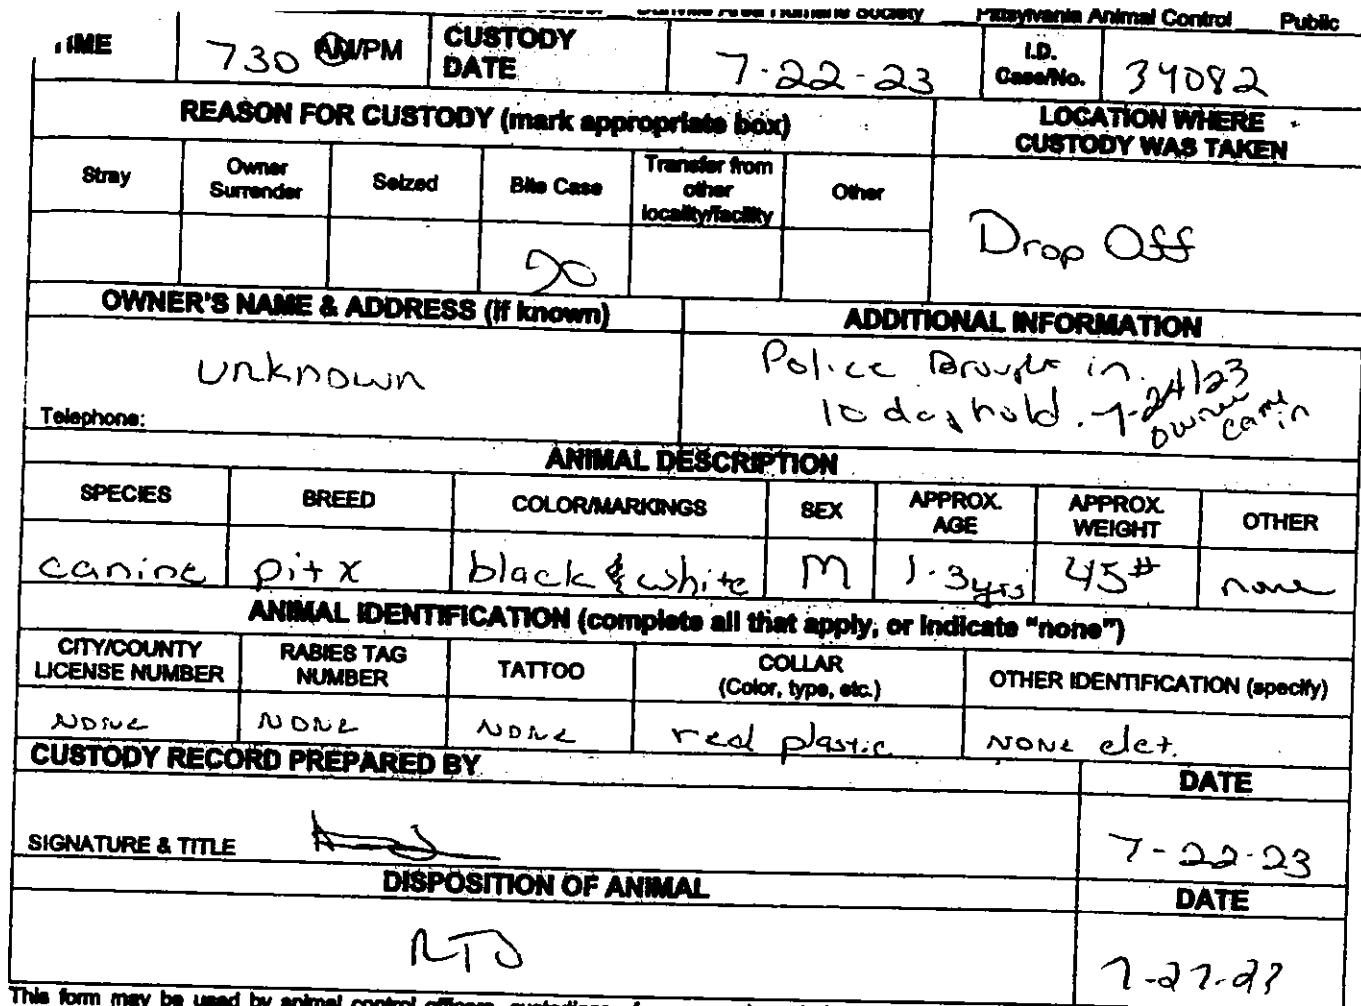 Danville Area Humane Society Pittsylvania Animal Control Public
TIME 730 AM/PM CUSTODY DATE 7-22-23 I.D. Case/No. 34082
REASON FOR CUSTODY (mark appropriate box) LOCATION WHERE CUSTODY WAS TAKEN
Stray Owner Surrender Seized Bite Case Transfer from other locality/facility Other
Drop Off
OWNER'S NAME & ADDRESS (if known) ADDITIONAL INFORMATION
unknown
Telephone:
Police Brought in.
10 day hold. 7-24/23
owner came in
ANIMAL DESCRIPTION
SPECIES BREED COLOR/MARKINGS SEX APPROX. AGE APPROX. WEIGHT OTHER
canine pit x black & white M 1-3yrs 45# none
ANIMAL IDENTIFICATION (complete all that apply, or indicate "none")
CITY/COUNTY LICENSE NUMBER RABIES TAG NUMBER TATTOO COLLAR (Color, type, etc.) OTHER IDENTIFICATION (specify)
NONE NONE NONE red plastic NONE det.
CUSTODY RECORD PREPARED BY DATE
SIGNATURE & TITLE 7-22-23
DISPOSITION OF ANIMAL DATE
RTO 7-27-23
This form may be used by animal control officers, custodians